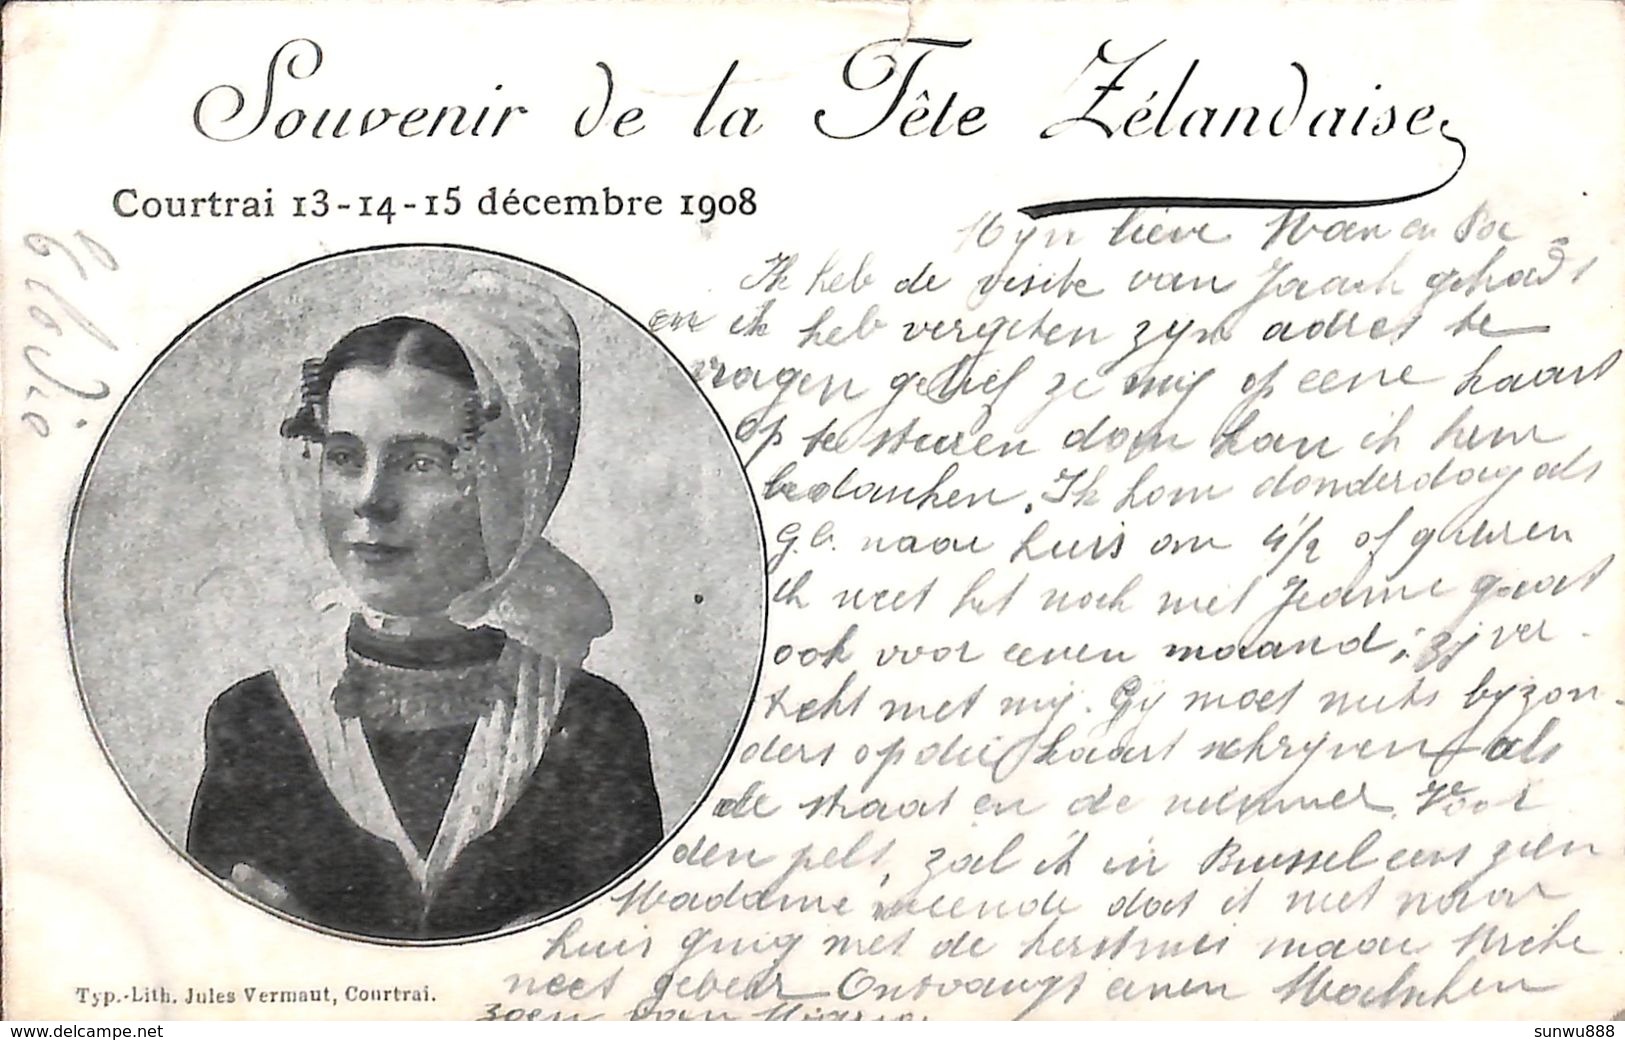 Souvenir de la Fête Zélandaise
Courtrai 13-14-15 décembre 1908
Mijn lieve Moe en Pa
Ik heb de visite van Jaach gehadt
en ik heb vergeten zijn adres te
vragen gelief ze mij op eene kaart
op te sturen dan kan ik hem
bedanken. Ik kom donderdag als
G.b. naar huis om 4 1/2 of 5 uren
ik weet het noch niet Jeanne gaat
ook voor eenen maand; zij ver-
trekt met mij. Gij moet niets bijzon-
ders op die kaart schrijven als
de straat en de nummer. Voor
den pels, zal ik in Brussel eens zien
Madame meende dat ik niet naar
huis ging met de kerstmis maar
neet gebeur Ontvangt eenen
zoen van Maria
Typ.-Lith. Jules Vermaut, Courtrai.
sunwu888